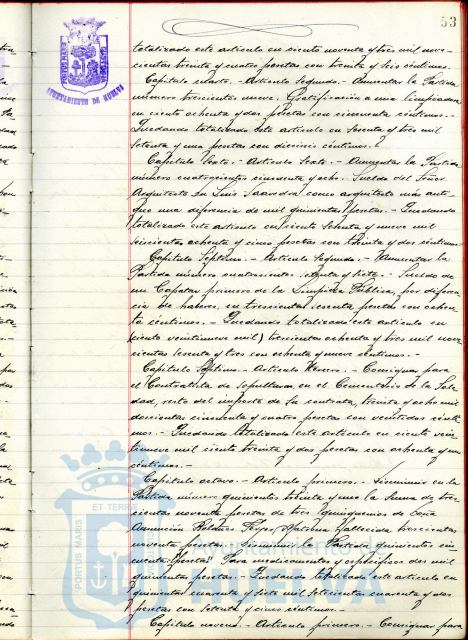 53
AYUNTAMIENTO DE HUELVA
totalizado este artículo en ciento noventa y tres mil nove-
cientas treinta y cuatro pesetas con treinta y seis céntimos.
Capítulo cuarto.- Artículo Segundo.- Aumentar la Partida
número trescientos nueve. Gratificación a una limpiadora
en ciento ochenta y dos pesetas con cincuenta céntimos.-
Quedando totalizado este artículo en Setenta y tres mil
setenta y una pesetas con dieciseis céntimos.
Capítulo Sexto.- Artículo Sexto.- Aumentar la Partida
número cuatrocientos cincuenta y ocho. Sueldo del Señor
Arquitecto Don Luis Saavedra, como arquitecto más anti-
guo una diferencia de mil quinientas pesetas.- Quedando
totalizado este artículo en ciento setenta y nueve mil
seiscientas ochenta y cinco pesetas con treinta y dos céntimos
Capítulo Septimo.- Artículo Segundo.- Aumentar la
Partida número cuatrocientos setenta y siete.- Sueldo de
un Capataz primero de la Limpieza Pública, por diferen-
cia de haberes, en trescientas sesenta pesetas con ochen-
ta céntimos.- Quedando totalizado este artículo en
(ciento veintinueve mil) trescientas ochenta y tres mil nove-
cientas sesenta y tres con ochenta y nueve céntimos.-
Capítulo Séptimo.- Artículo Tercero.- Consignar para
el Contratista de Sepulturas en el Cementerio de la Sole-
dad, resto del importe de su contrata, treinta y ocho mil
doscientas cincuenta y cuatro pesetas con veintidos cénti-
mos.- Quedando totalizado este artículo en ciento vein-
tinueve mil ciento treinta y dos pesetas con ochenta y un
céntimos.-
Capítulo octavo.- Artículo primero.- Disminuir en la
Partida número quinientos treinta y uno la suma de tres-
cientas noventa pesetas de tres quinquenios de Doña
Asunción Roldán, Matrona fallecida trescientas
noventa pesetas. quinientos cin-
cuenta Para medicamentos y específicos dos mil
quinientas pesetas. Quedando totalizado este artículo en
quinientas cuarenta y siete mil setecientas cuarenta y dos
pesetas con setenta y cinco céntimos.-
Capítulo noveno.- Artículo primero.- Consignar para
PORTUS MARIS
ET TERRE
Ayuntamiento de
HUELVA